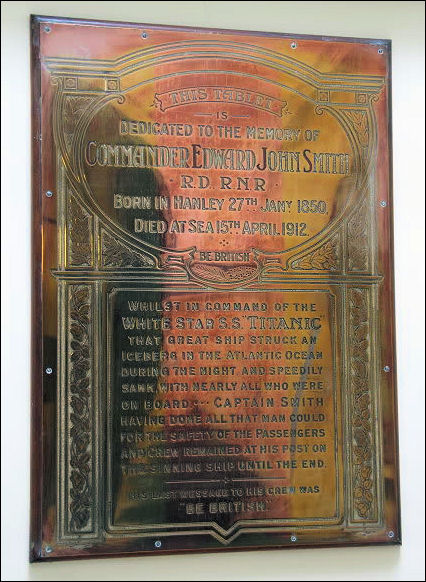 THIS TABLET
IS
DEDICATED TO THE MEMORY OF
COMMANDER EDWARD JOHN SMITH
R.D. R.N.R.
BORN IN HANLEY 27TH JANY 1850,
DIED AT SEA 15TH APRIL 1912.
BE BRITISH
WHILST IN COMMAND OF THE
WHITE STAR S.S. "TITANIC"
THAT GREAT SHIP STRUCK AN
ICEBERG IN THE ATLANTIC OCEAN
DURING THE NIGHT AND SPEEDILY
SANK WITH NEARLY ALL WHO WERE
ON BOARD:- CAPTAIN SMITH
HAVING DONE ALL THAT MAN COULD
FOR THE SAFETY OF THE PASSENGERS
AND CREW REMAINED AT HIS POST ON
THE SINKING SHIP UNTIL THE END.
HIS LAST MESSAGE TO HIS CREW WAS
"BE BRITISH."